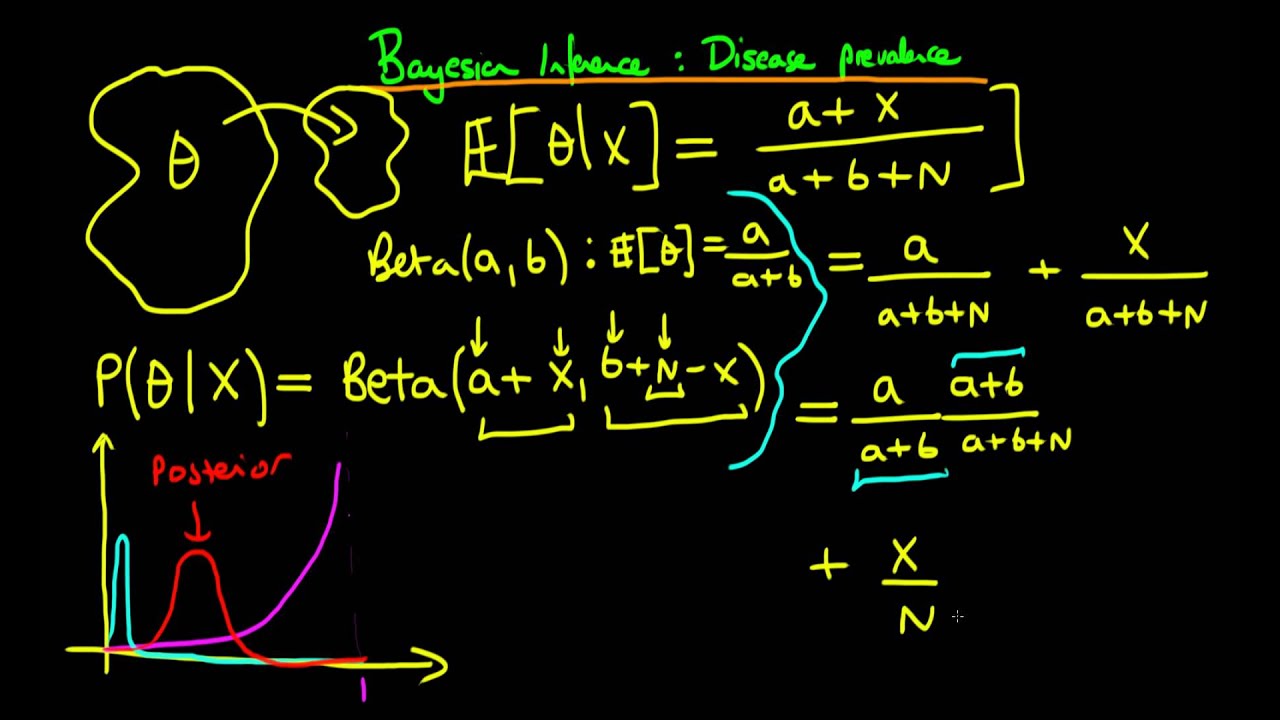 Bayesian Inference : Disease prevalence
θ
E[θ|X] = (a + X)/(a + b + N)]
Beta(a, b) : E[θ] = a/(a+b)
= a/(a+b+N) + X/(a+b+N)
P(θ|X) = Beta(a + X, b + N - X)
= a/(a+b) (a+b)/(a+b+N)
Posterior
+ X/N
1